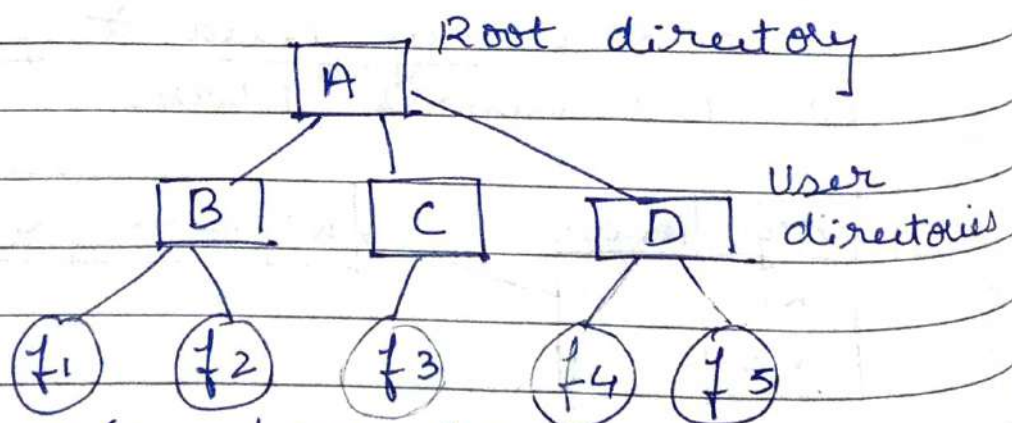 Root directory
A
User
B C D directories
f1 f2 f3 f4 f5